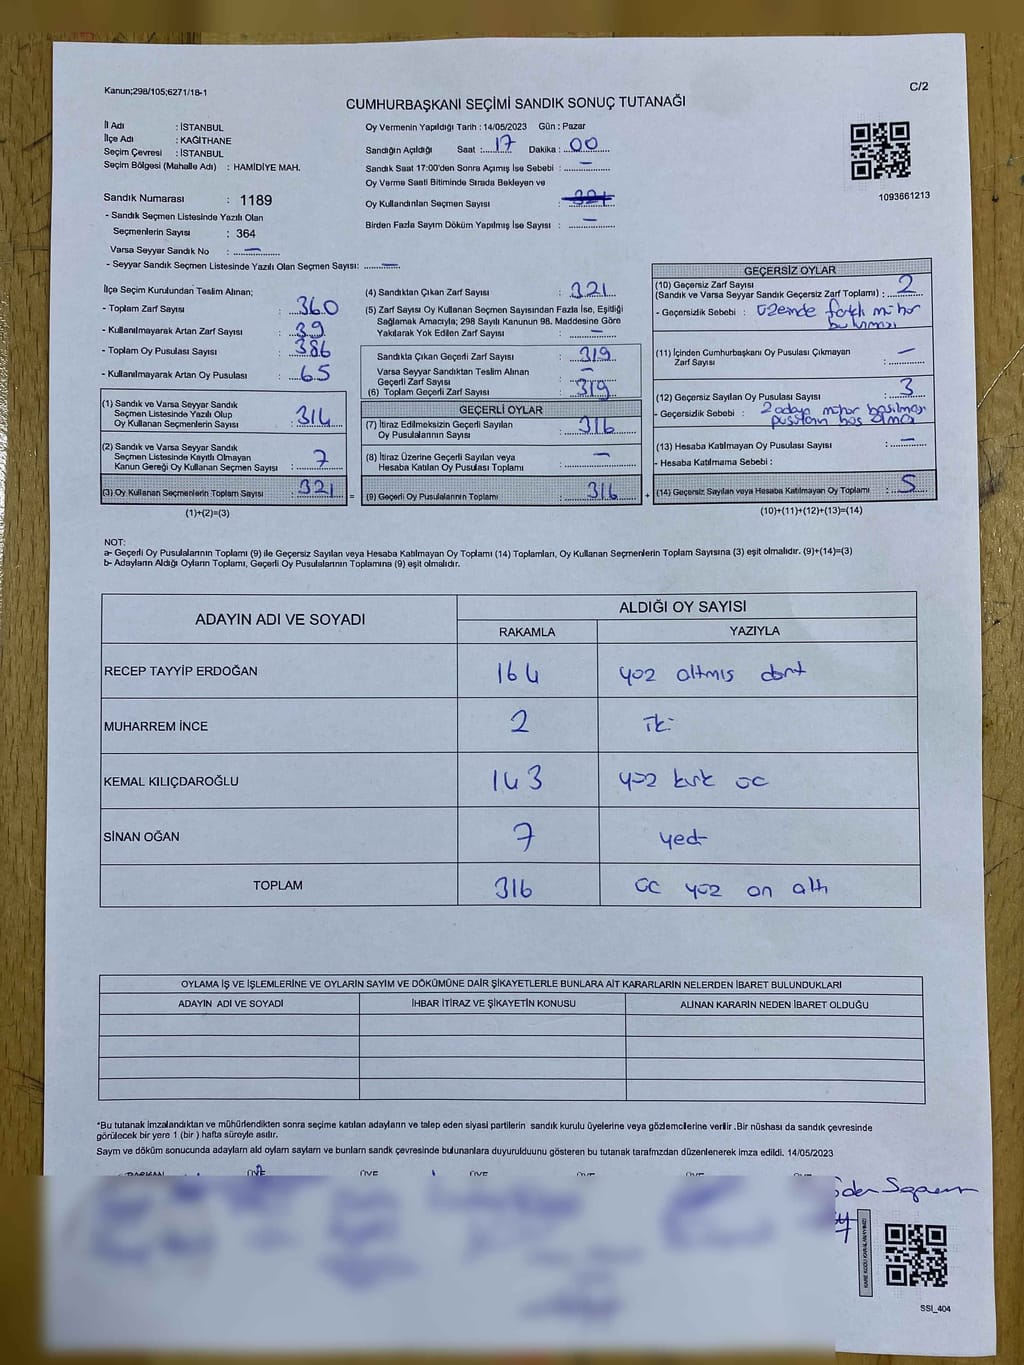 Kanun;298/105;6271/18-1
C/2
CUMHURBAŞKANI SEÇİMİ SANDIK SONUÇ TUTANAĞI
İl Adı : İSTANBUL
İlçe Adı : KAĞITHANE
Seçim Çevresi : İSTANBUL
Seçim Bölgesi (Mahalle Adı) : HAMİDİYE MAH.
Sandık Numarası : 1189
- Sandık Seçmen Listesinde Yazılı Olan
Seçmenlerin Sayısı : 364
Varsa Seyyar Sandık No : —
- Seyyar Sandık Seçmen Listesinde Yazılı Olan Seçmen Sayısı: —
Oy Vermenin Yapıldığı Tarih : 14/05/2023 Gün : Pazar
Sandığın Açıldığı Saat : 17 Dakika : 00
Sandık Saat 17:00'den Sonra Açımış İse Sebebi : —
Oy Verme Saati Bitiminde Sırada Bekleyen ve
Oy Kullandırılan Seçmen Sayısı : 321
Birden Fazla Sayım Döküm Yapılmış İse Sayısı : —
1093661213
İlçe Seçim Kurulundan Teslim Alınan;
- Toplam Zarf Sayısı : 360
- Kullanılmayarak Artan Zarf Sayısı : 39
- Toplam Oy Pusulası Sayısı : 386
- Kullanılmayarak Artan Oy Pusulası : 65
(1) Sandık ve Varsa Seyyar Sandık
Seçmen Listesinde Yazılı Olup
Oy Kullanan Seçmenlerin Sayısı : 314
(2) Sandık ve Varsa Seyyar Sandık
Seçmen Listesinde Kayıtlı Olmayan
Kanun Gereği Oy Kullanan Seçmen Sayısı : 7
(3) Oy Kullanan Seçmenlerin Toplam Sayısı : 321 =
(1)+(2)=(3)
(4) Sandıktan Çıkan Zarf Sayısı : 321
(5) Zarf Sayısı Oy Kullanan Seçmen Sayısından Fazla İse, Eşitliği
Sağlamak Amacıyla; 298 Sayılı Kanunun 98. Maddesine Göre
Yakılarak Yok Edilen Zarf Sayısı : —
Sandıkta Çıkan Geçerli Zarf Sayısı : 319
Varsa Seyyar Sandıktan Teslim Alınan
Geçerli Zarf Sayısı : —
(6) Toplam Geçerli Zarf Sayısı : 319
GEÇERLİ OYLAR
(7) İtiraz Edilmeksizin Geçerli Sayılan
Oy Pusulalarının Sayısı : 316
(8) İtiraz Üzerine Geçerli Sayılan veya
Hesaba Katılan Oy Pusulası Toplamı : —
(9) Geçerli Oy Pusulalarının Toplamı : 316 +
GEÇERSİZ OYLAR
(10) Geçersiz Zarf Sayısı
(Sandık ve Varsa Seyyar Sandık Geçersiz Zarf Toplamı) : 2
- Geçersizlik Sebebi : üzerinde farklı mühür
bulunması
(11) İçinden Cumhurbaşkanı Oy Pusulası Çıkmayan
Zarf Sayısı : —
(12) Geçersiz Sayılan Oy Pusulası Sayısı : 3
- Geçersizlik Sebebi : 2 adaya mühür basılması
boş olması
(13) Hesaba Katılmayan Oy Pusulası Sayısı : —
- Hesaba Katılmama Sebebi :
(14) Geçersiz Sayılan veya Hesaba Katılmayan Oy Toplamı : 5
(10)+(11)+(12)+(13)=(14)
NOT:
a- Geçerli Oy Pusulalarının Toplamı (9) ile Geçersiz Sayılan veya Hesaba Katılmayan Oy Toplamı (14) Toplamları, Oy Kullanan Seçmenlerin Toplam Sayısına (3) eşit olmalıdır. (9)+(14)=(3)
b- Adayların Aldığı Oyların Toplamı, Geçerli Oy Pusulalarının Toplamına (9) eşit olmalıdır.
ADAYIN ADI VE SOYADI ALDIĞI OY SAYISI
RAKAMLA YAZIYLA
RECEP TAYYİP ERDOĞAN 164 yüz altmış dört
MUHARREM İNCE 2 iki
KEMAL KILIÇDAROĞLU 143 yüz kırk üç
SİNAN OĞAN 7 yedi
TOPLAM 316 üç yüz on altı
OYLAMA İŞ VE İŞLEMLERİNE VE OYLARIN SAYIM VE DÖKÜMÜNE DAİR ŞİKAYETLERLE BUNLARA AİT KARARLARIN NELERDEN İBARET BULUNDUKLARI
ADAYIN ADI VE SOYADI İHBAR İTİRAZ VE ŞİKAYETİN KONUSU ALINAN KARARIN NEDEN İBARET OLDUĞU
*Bu tutanak imzalandıktan ve mühürlendikten sonra seçime katılan adayların ve talep eden siyasi partilerin sandık kurulu üyelerine veya gözlemcilerine verilir .Bir nüshası da sandık çevresinde
görülecek bir yere 1 (bir ) hafta süreyle asılır.
Sayım ve döküm sonucunda adayların ald oyların sayları ve bunların sandk çevresinde bulunanlara duyurulduunu gösteren bu tutanak tarafmzdan düzenlenerek imza edildi. 14/05/2023
BAŞKAN ÜYE ÜYE ÜYE ÜYE ÜYE
KARE KODU KARALAMAYINIZ!
SSI_404